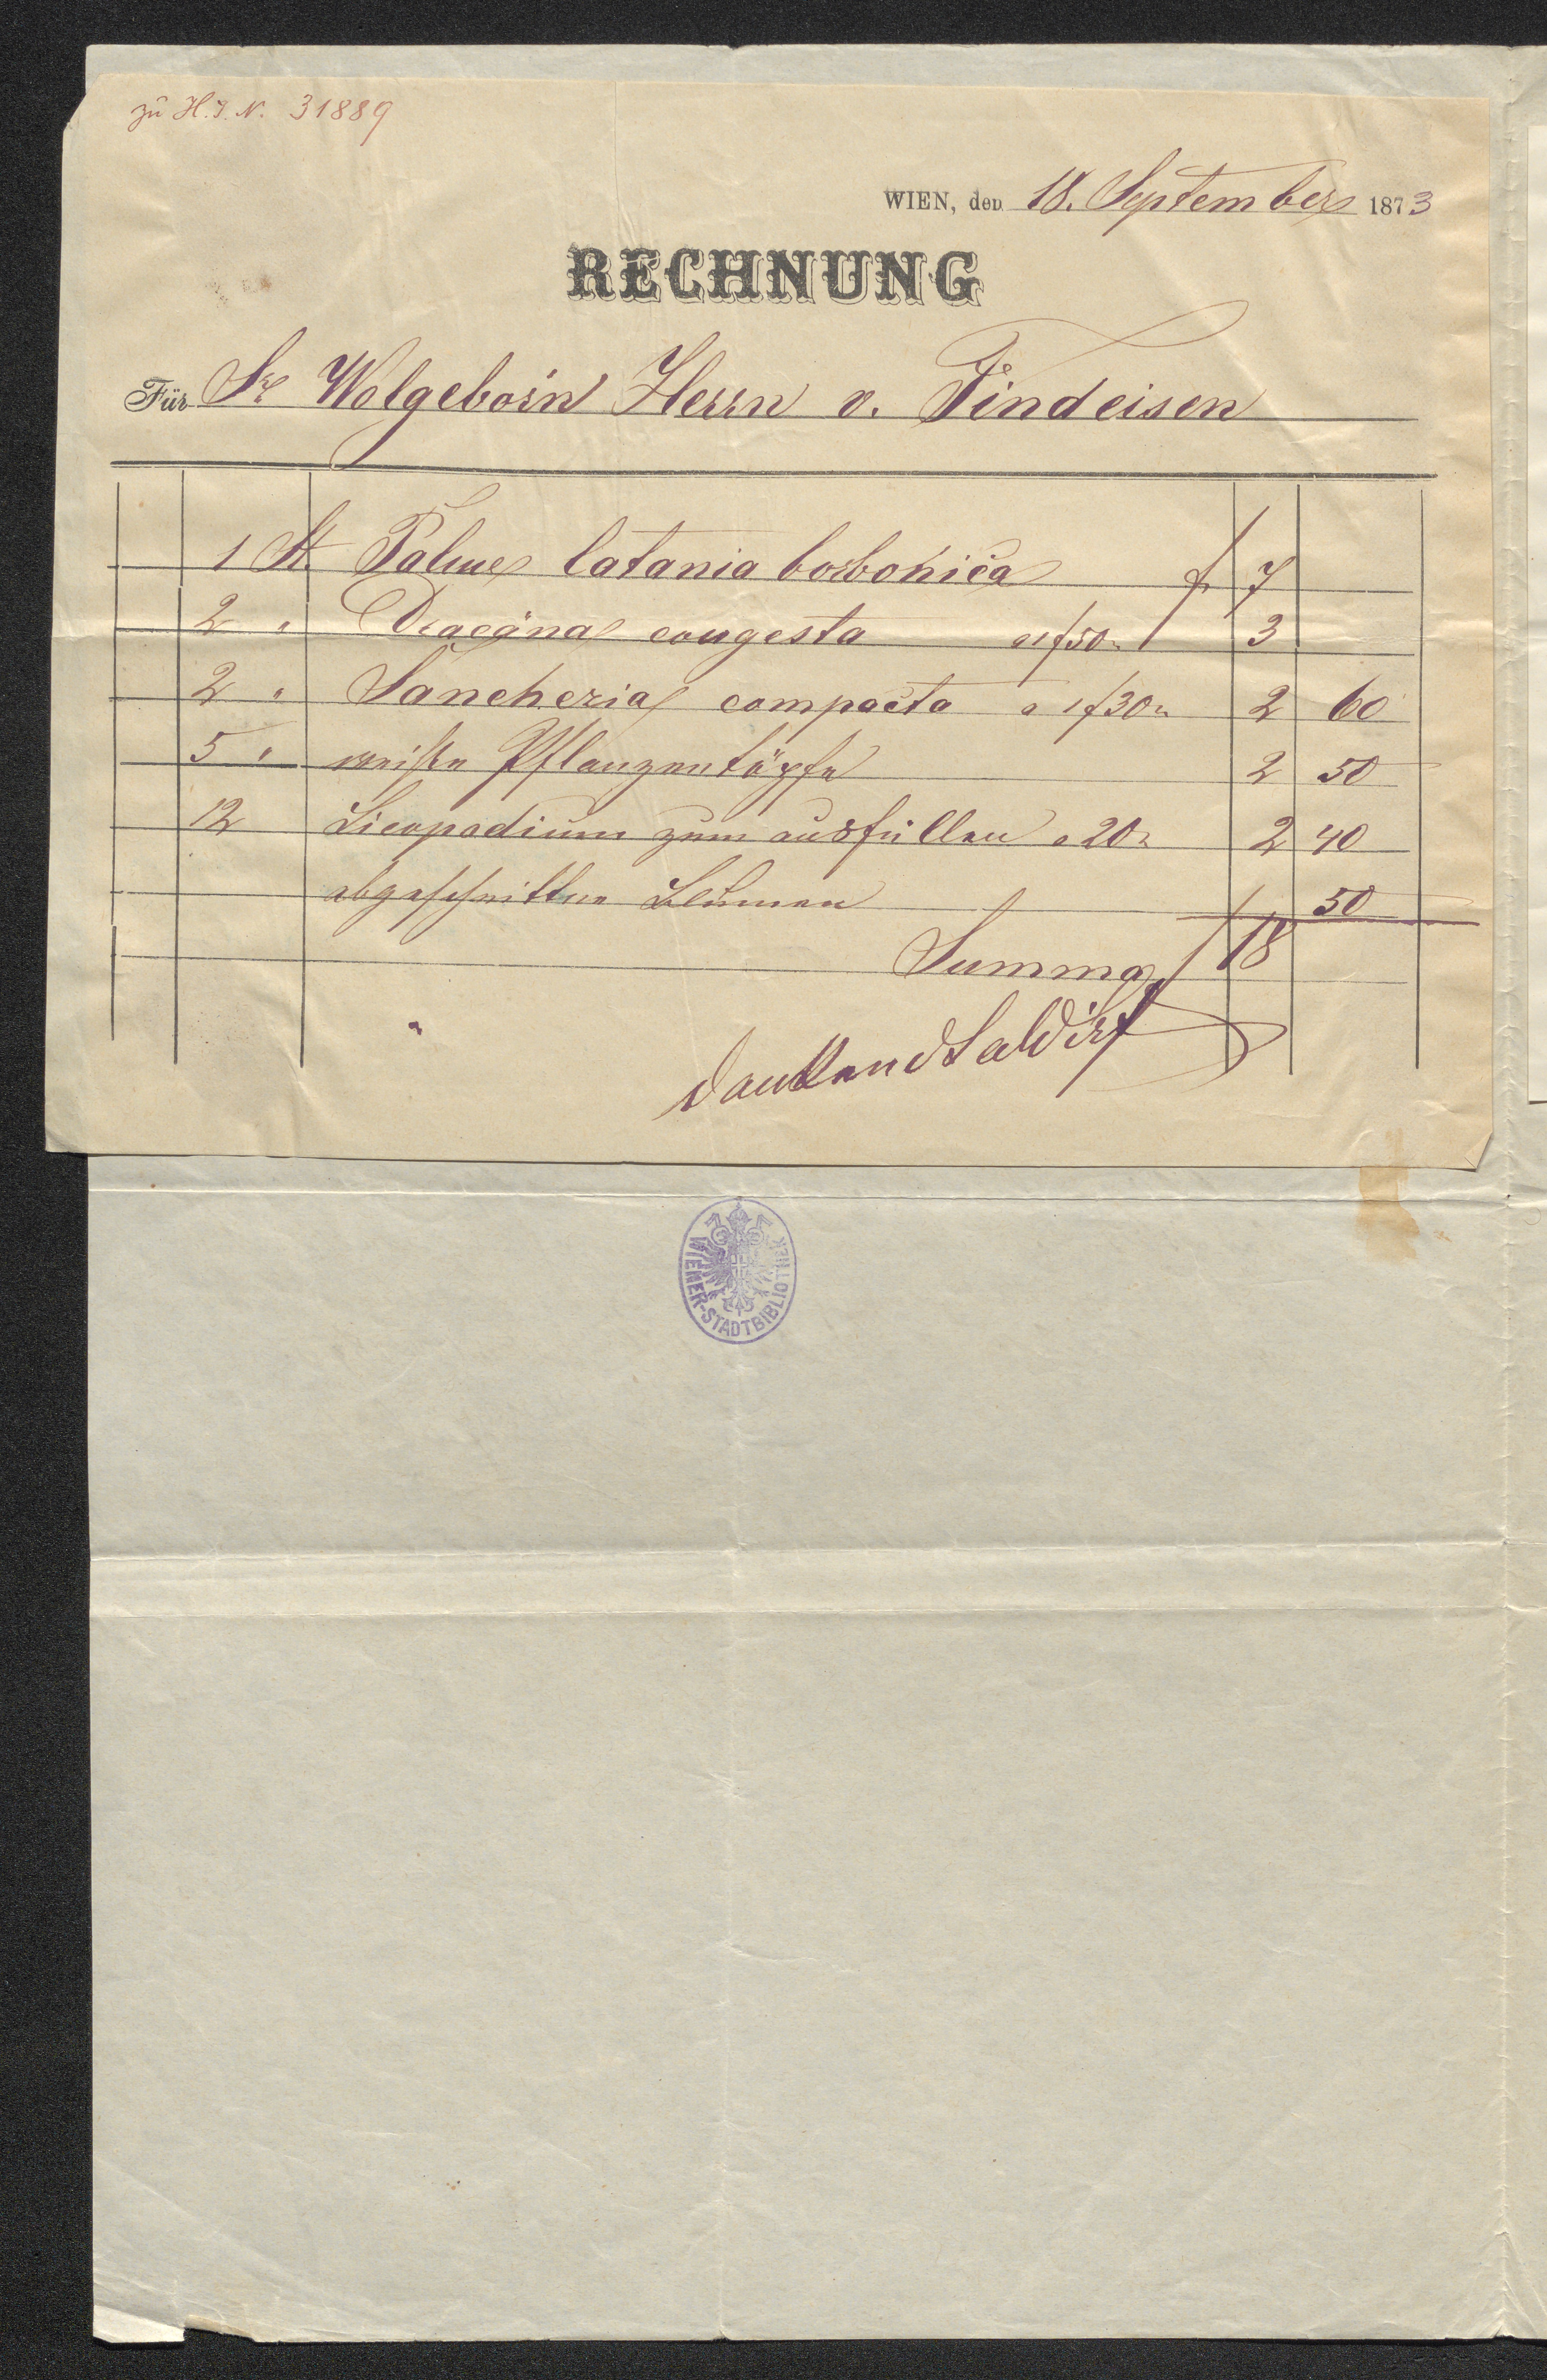 zu H.I.N. 31889
WIEN, den 18. September 1873
RECHNUNG
Für Sr Wolgeborn Herrn v. Findeisen
1 St Palme latania borbonica f 7
2 " Dracäna congesta a 1f50 3
2 " Sancheria compacta a 1f30 2 60
5 " weiße Pflanzentöpfe 2 50
12 Licopodium zum ausfüllen a 20 2 40
abgeschnittne Blumen 50
Summa f 18
dankend Saldirt
WIENER-STADTBIBLIOTHEK